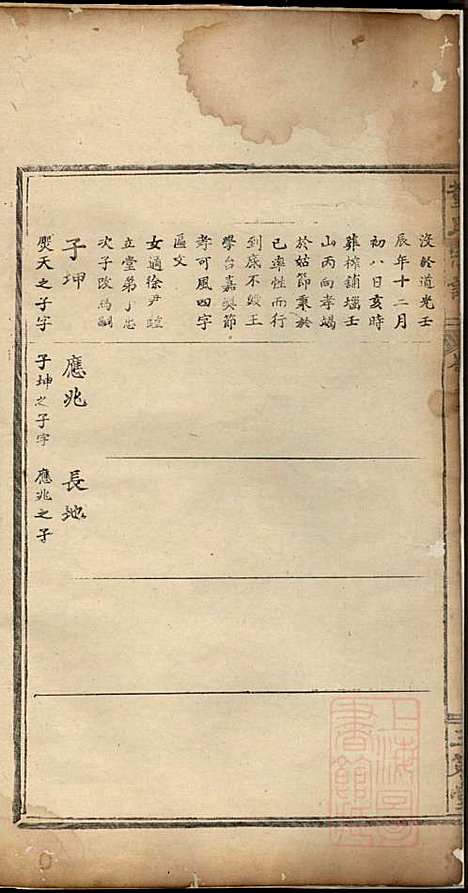 沒於道光壬
辰年十二月
初八日亥時
葬榨鋪壋壬
山丙向孝竭
於姑節秉於
己率性而行
到底不變王
學台嘉與節
孝可風四字
匾文
女適徐尹
立堂弟丁忠
次子啟為嗣
子坤
應兆
長地
天之子字
子坤之子字
應兆之子